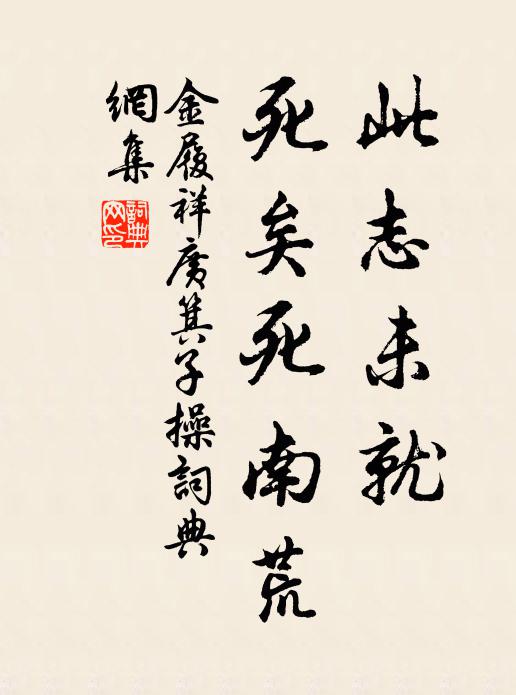 此志未就
死矣死南荒
金履祥廣箕子操詞典
網集
詞典網印